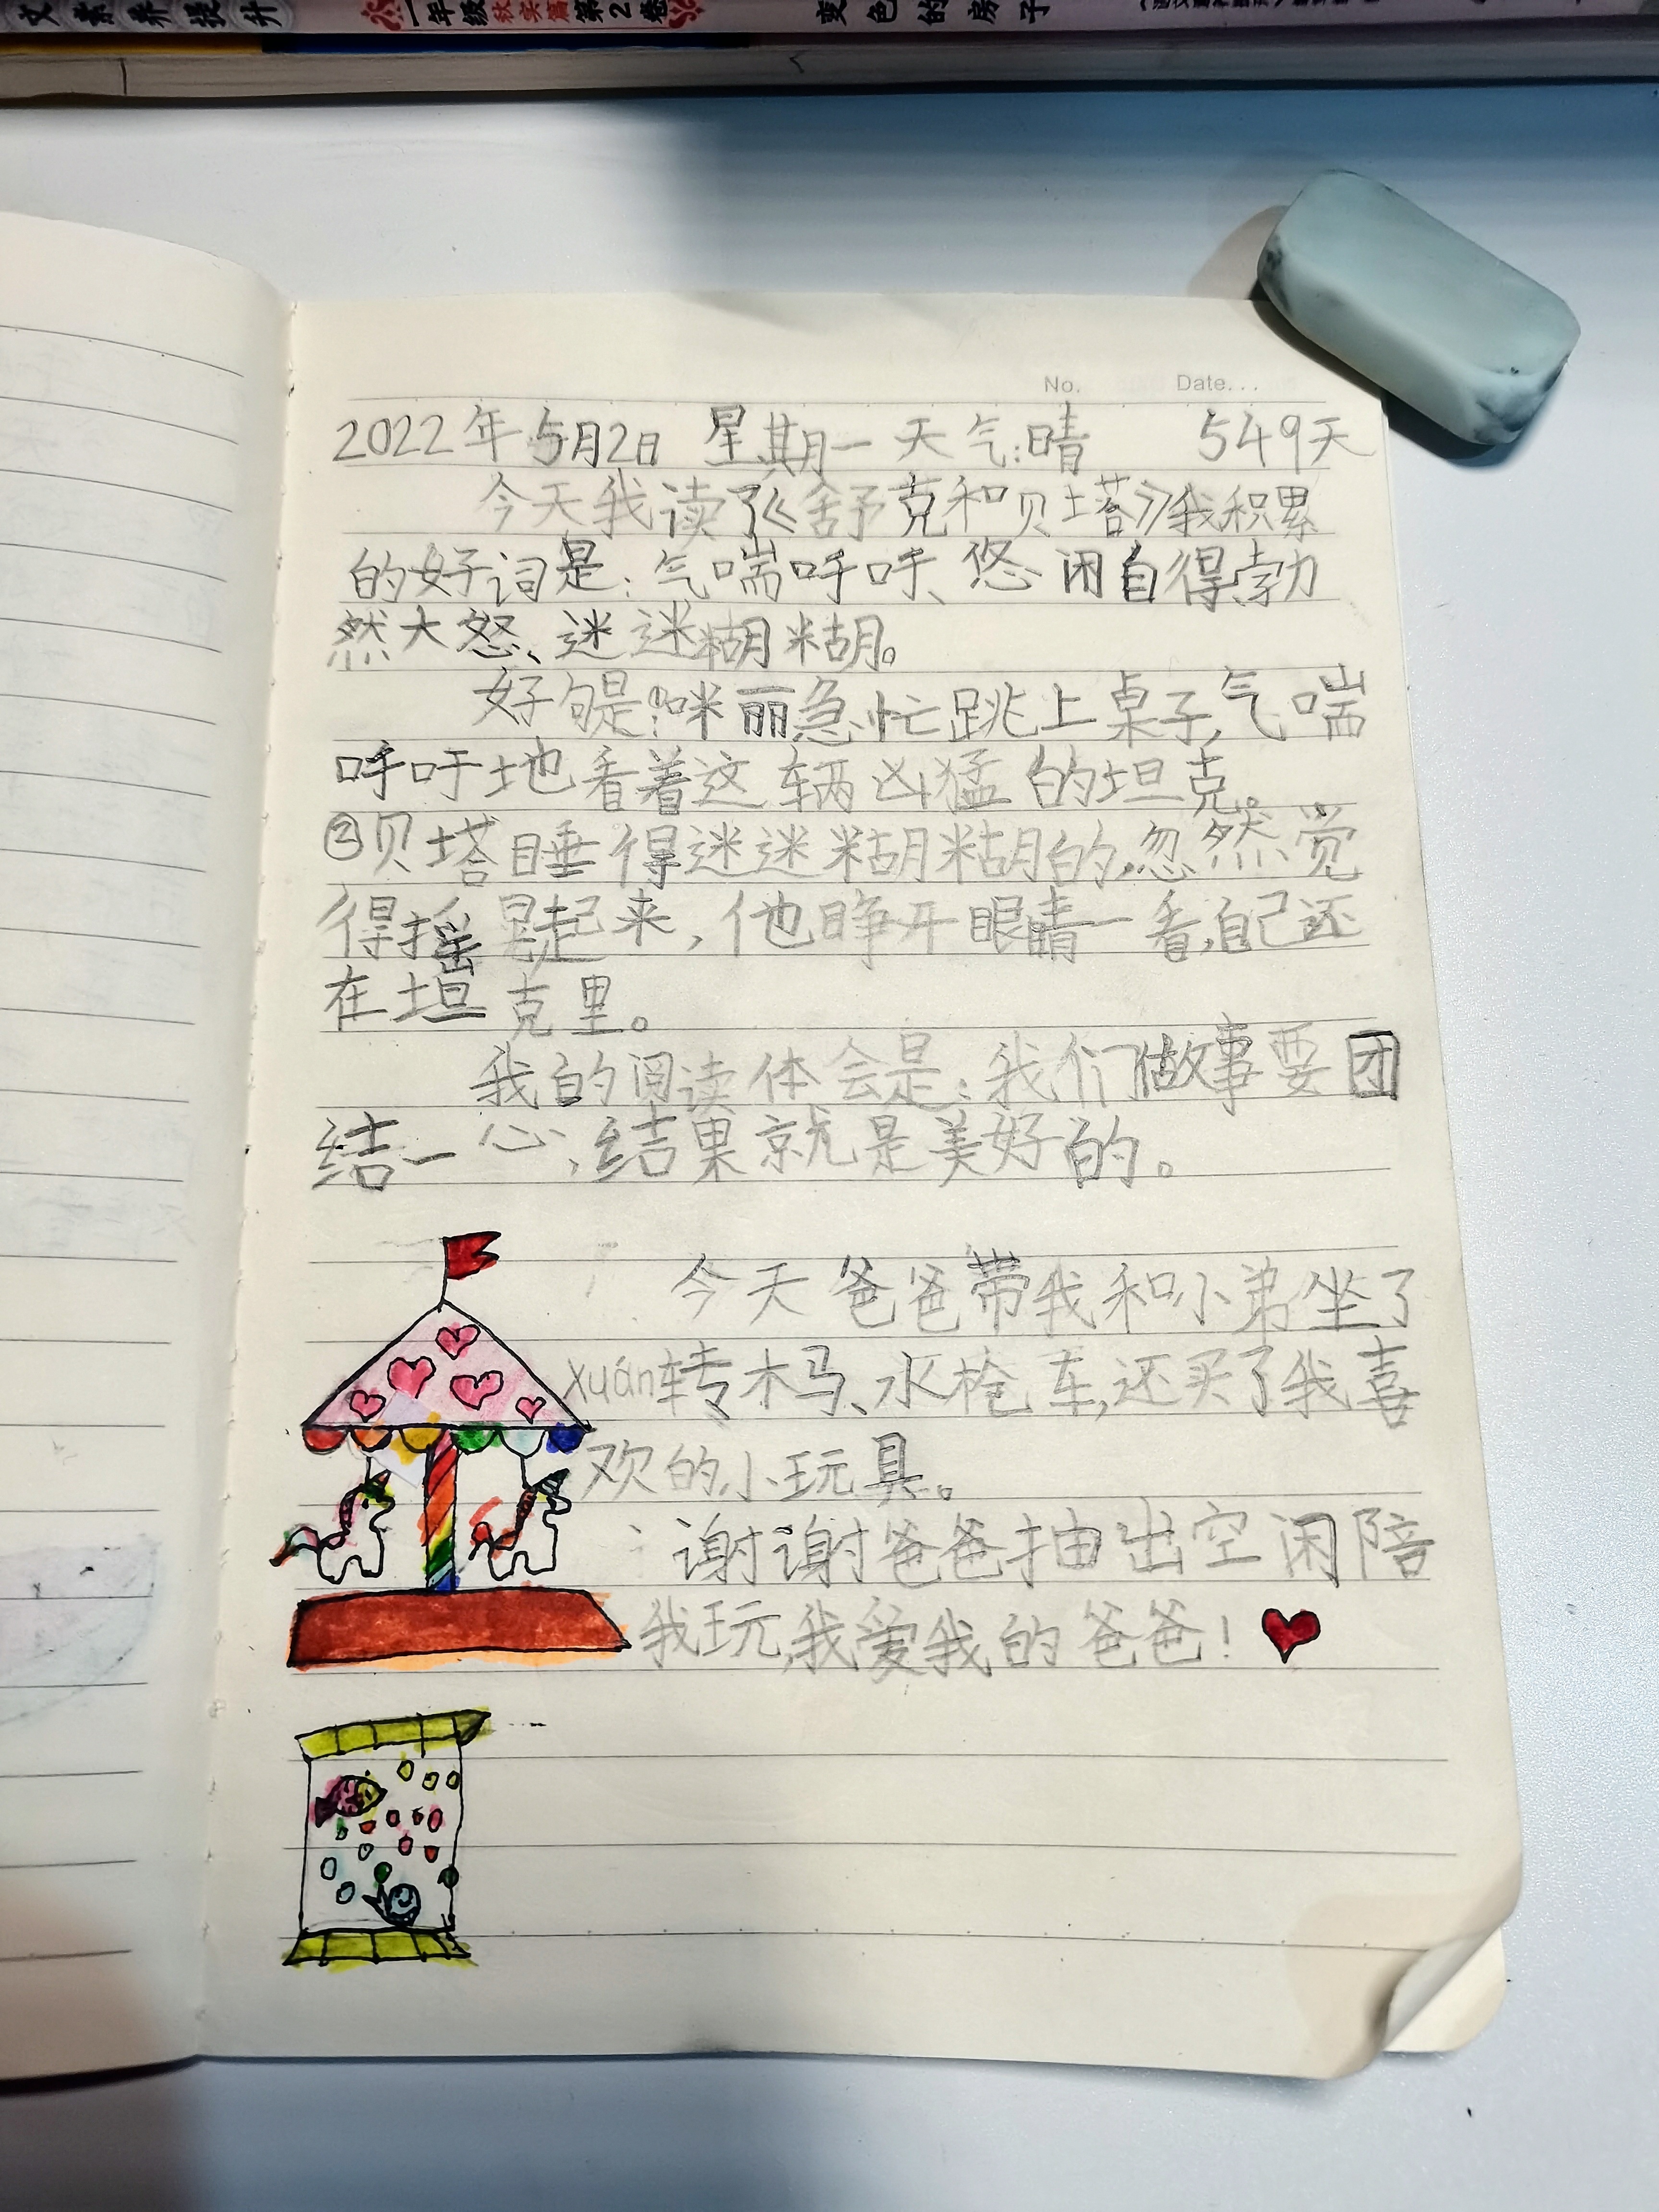 文素养提升
一年级 秋实篇 第2卷
变色的房子
No. Date...
2022年5月2日 星期一 天气:晴 549天
今天我读了《舒克和贝塔》我积累
的好词是:气喘呼呼、悠闲自得勃
然大怒、迷迷糊糊。
好句是:①咪丽急忙跳上桌子,气喘
呼吁地看着这辆凶猛的坦克。
②贝塔睡得迷迷糊糊的,忽然觉
得摇晃起来,他睁开眼睛一看,自己还
在坦克里。
我的阅读体会是:我们做事要团
结一心,结果就是美好的。
今天爸爸带我和小弟坐了
xuán转木马、水栓车,还买了我喜
欢的小玩具。
谢谢爸爸抽出空闲陪
我玩,我爱我的爸爸!